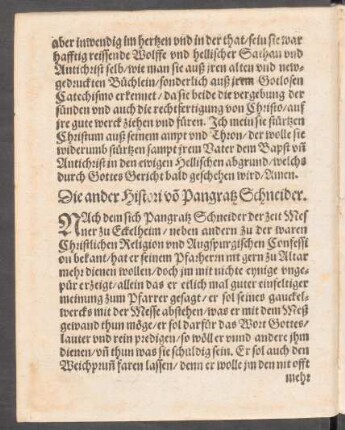 aber inwendig im hertzen vnd in der that/ sein sie war
hafftig reissende Wolffe vnd hellischer Sathan vnd
Antichrist selb/ wie man sie auß jren alten vnd new-
gedruckten Büchlein/ sonderlich auß jrem Gotlosen
Catechismo erkennet/ da sie beide die vergebung der
sünden vnd auch die rechtfertigung von Christo/ auf
jre gute werck ziehen vnd füren. Ich mein sie stürtzen
Christum auß seinem ampt vnd Thron/ der wolle sie
widerumb stürtzen sampt jrem Vater dem Bapst vñ
Antichrist in den ewigen Hellischen abgrund/ welchs
durch Gottes Gericht bald geschehen wird/ Amen.
Die ander Histori võ Pangratz Schneider.
NAch dem sich Pangratz Schneider der zeit Mes
ner zu Eckelheim/ neben andern zu der waren
Christlichen Religion vnd Augspurgischen Confessi
on bekant/ hat er seinem Pfarherrn nit gern zu Altar
mehr dienen wollen/ doch jm mit nichte eynige vnge-
pür erzeigt/ allein das er etlich mal guter einfeltiger
meinung zum Pfarrer gesagt/ er sol seines gauckel-
wercks mit der Messe abstehen/ was er mit dem Meß
gewand thun möge/ er sol darfür das Wort Gottes/
lauter vnd rein predigen/ so wöll er vnnd andere jhm
dienen/ vñ thun was sie schuldig sein. Er sol auch den
Weichprun faren lassen/ denn er wolle jm den nit offt
mehr